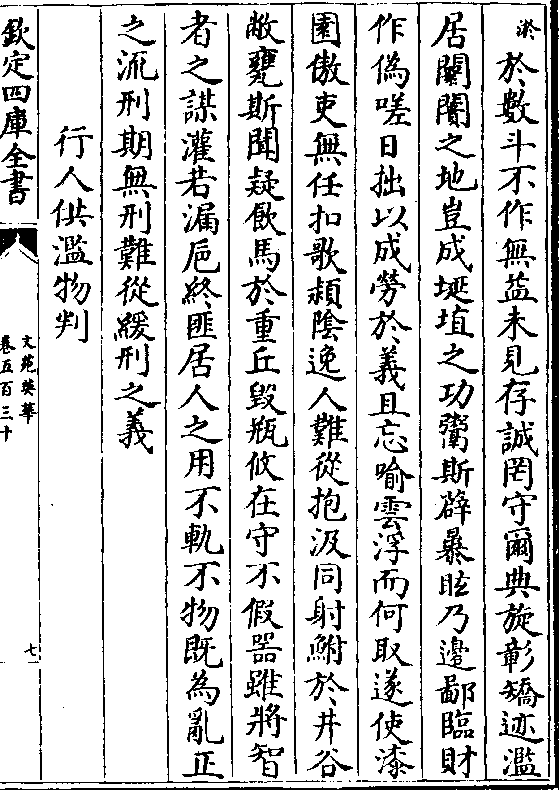 淤於數斗不作無益未見存誠罔守爾典旋彰矯迹濫
居闤闠之地豈成埏埴之功鬻斯薜暴眩乃邊鄙臨財
作偽嗟日拙以成勞於義且忘喻雲浮而何取遂使漆
園傲吏無任扣歌潁隂逸人難從抱汲同射鮒於井谷
敝甕斯聞疑飲馬於重丘毀瓶攸在守不假器雖將智
者之謀灌若漏巵終匪居人之用不軌不物既為亂正
之流刑期無刑難從緩刑之義
行人供濫物判
欽定四庫全書
文苑英華
卷五百三十
七